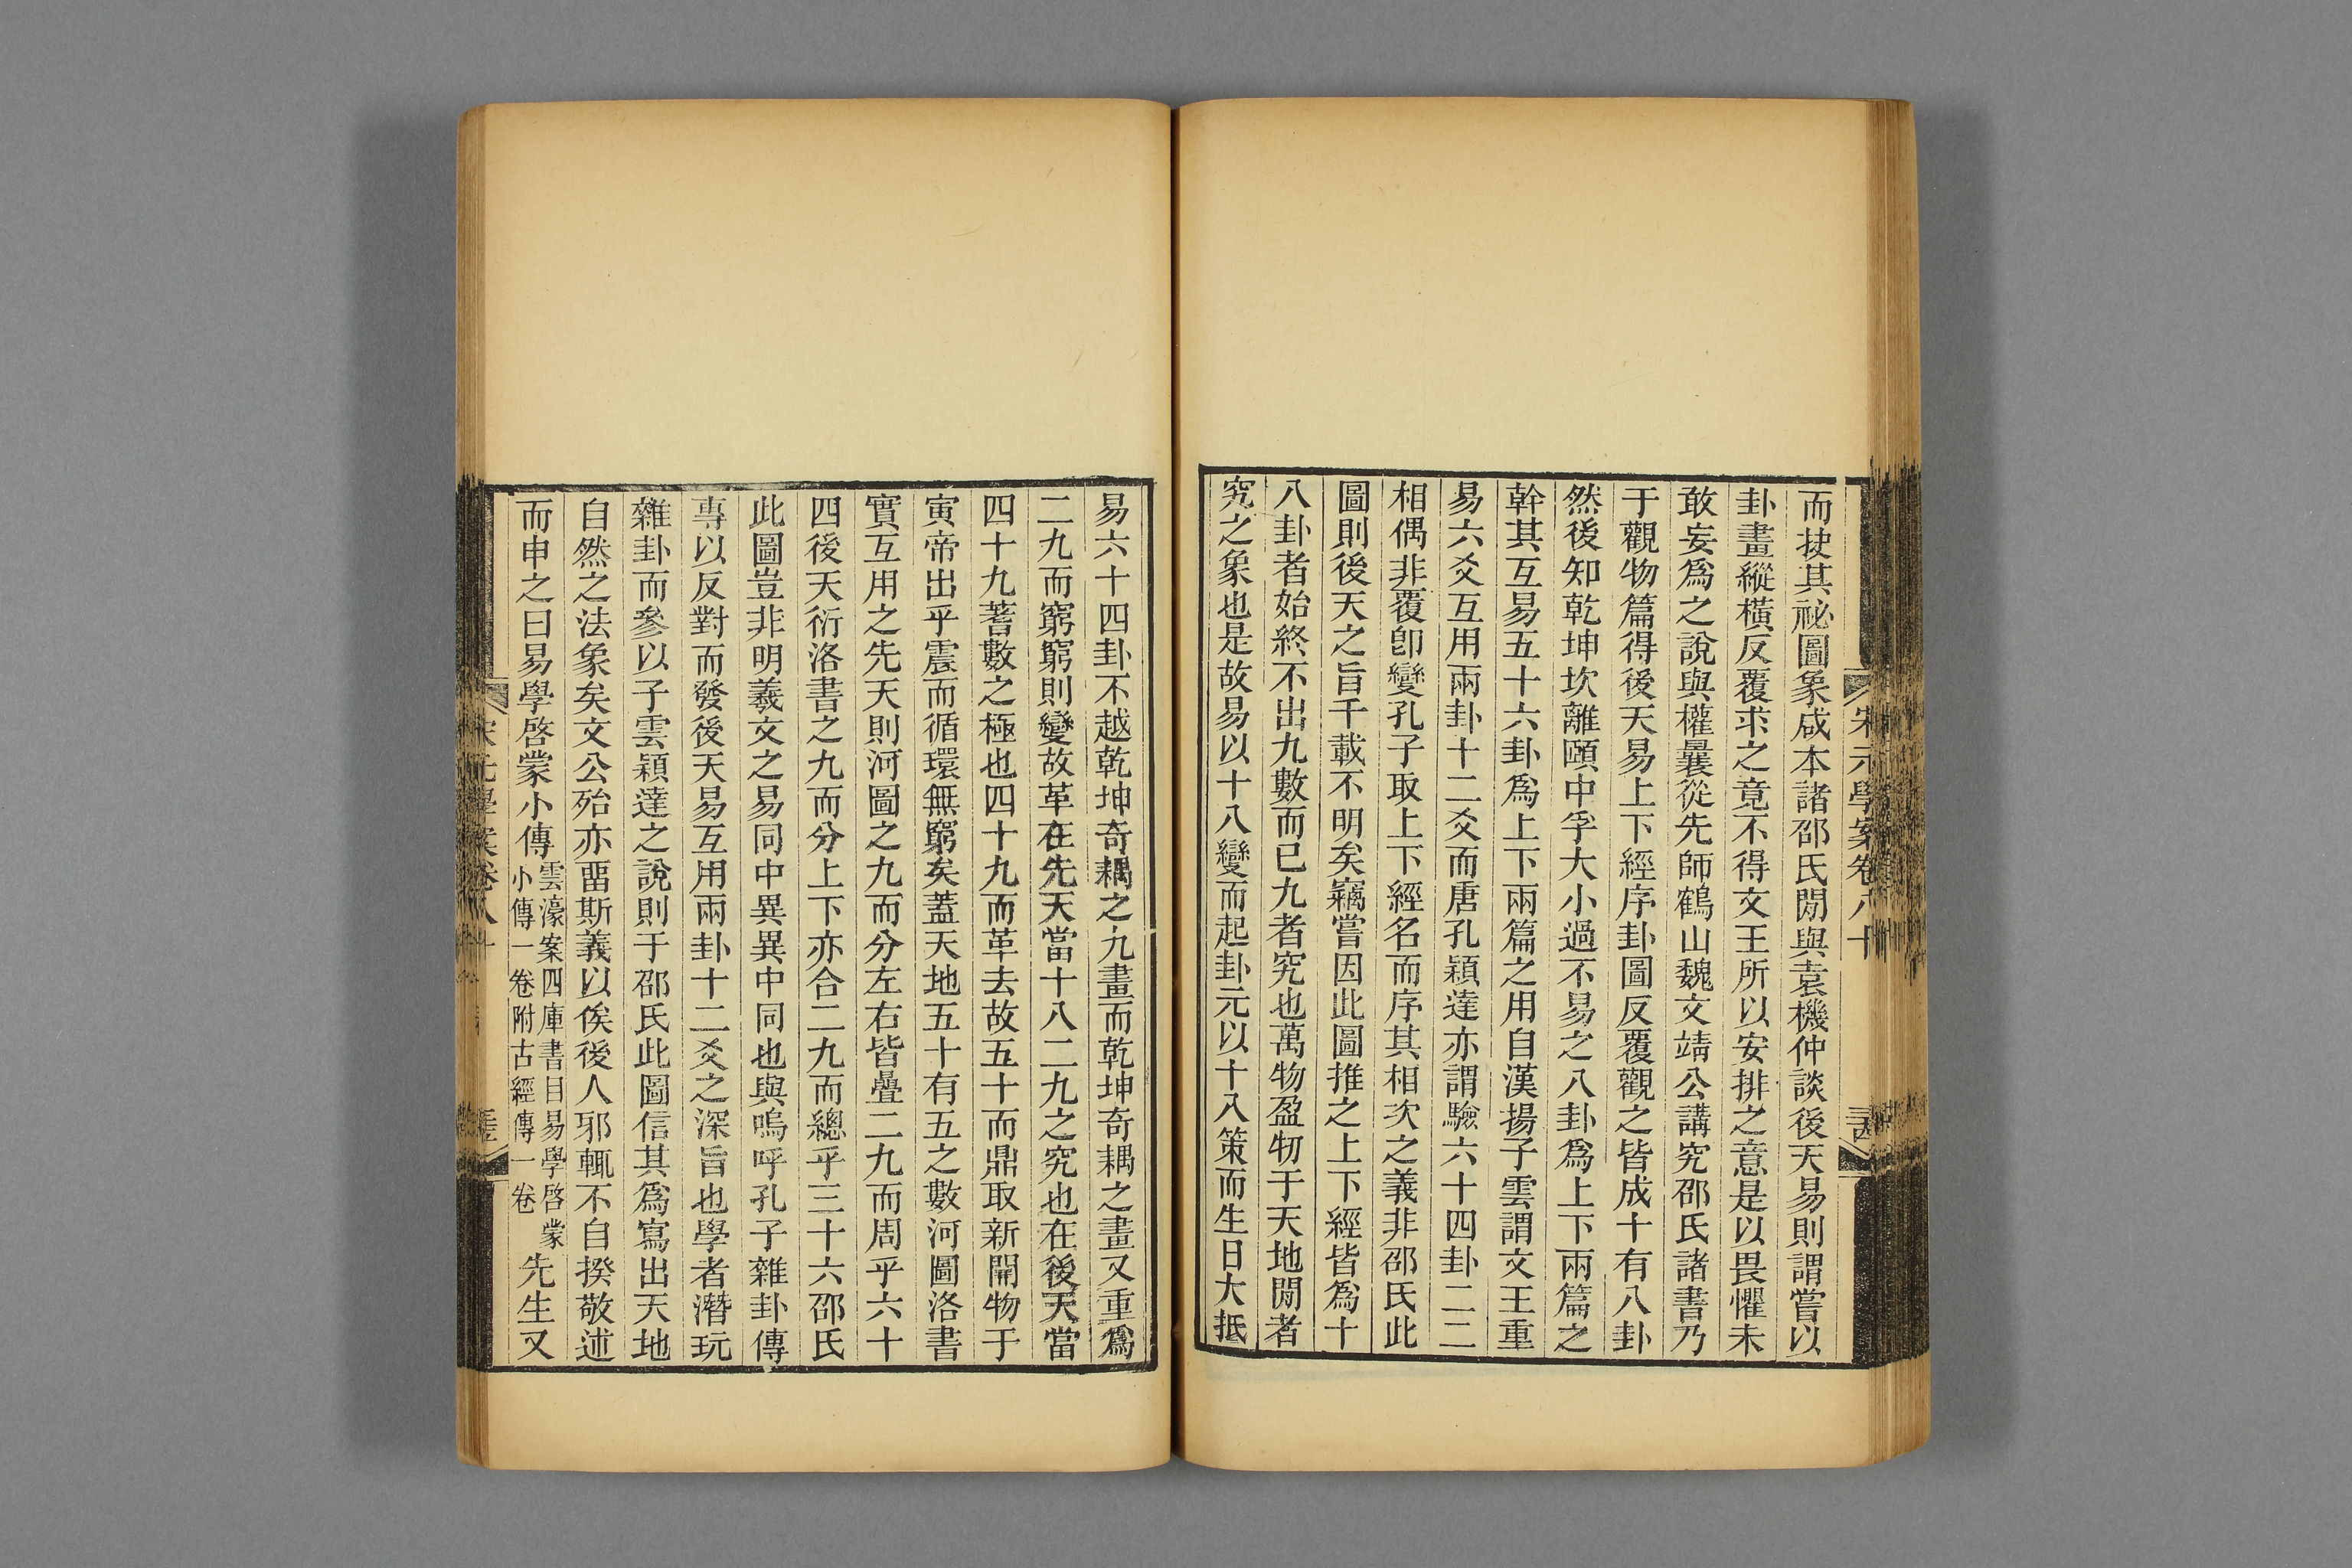 宋元學案卷八十
而抶其祕圖象咸本諸邵氏閒與袁機仲談後天易則謂嘗以
卦畫縱橫反覆求之竟不得文王所以安排之意是以畏懼未
敢妄爲之說與權曩從先師鶴山魏文靖公講究邵氏諸書乃
于觀物篇得後天易上下經序卦圖反覆觀之皆成十有八卦
然後知乾坤坎離頤中孚大小過不易之八卦爲上下兩篇之
幹其互易五十六卦爲上下兩篇之用自漢揚子雲謂文王重
易六爻互用兩卦十二爻而唐孔穎達亦謂驗六十四卦二二
相偶非覆卽變孔子取上下經名而序其相次之義非邵氏此
圖則後天之旨千載不明矣竊嘗因此圖推之上下經皆爲十
八卦者始終不出九數而已九者究也萬物盈牣于天地閒者
究之象也是故易以十八變而起卦元以十八策而生日大抵
易六十四卦不越乾坤奇耦之九畫而乾坤奇耦之畫又重爲
二九而窮窮則變故革在先天當十八二九之究也在後天當
四十九蓍數之極也四十九而革去故五十而鼎取新開物于
寅帝出乎震而循環無窮矣蓋天地五十有五之數河圖洛書
實互用之先天則河圖之九而分左右皆疊二九而周乎六十
四後天衍洛書之九而分上下亦合二九而總乎三十六邵氏
此圖豈非明羲文之易同中異異中同也與嗚呼孔子雜卦傳
專以反對而發後天易互用兩卦十二爻之深旨也學者潛玩
雜卦而參以子雲穎達之說則于邵氏此圖信其爲寫出天地
自然之法象矣文公殆亦畱斯義以俟後人邪輒不自揆敬述
而申之曰易學啓蒙小傳雲濠案四庫書目易學啓蒙小傳一卷附古經傳一卷先生又
宋元學案卷八十